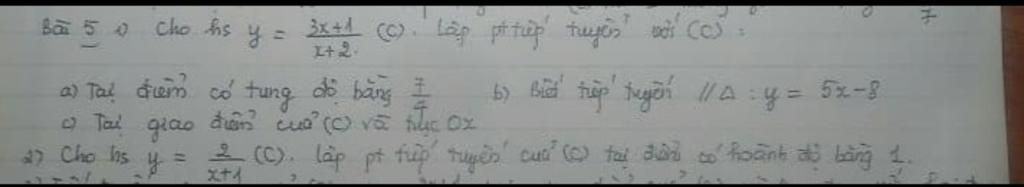 Bài 5 1) Cho hs y = \frac{3x+1}{x+2} (C). Lập pt tiếp tuyến với (C) :
a) Tại điểm có tung độ bằng \frac{7}{4} b) Biết tiếp tuyến // Δ : y = 5x-8
c) Tại giao điểm của (C) và trục Ox
2) Cho hs y = \frac{2}{x+1} (C). Lập pt tiếp tuyến của (C) tại điểm có hoành độ bằng 1.